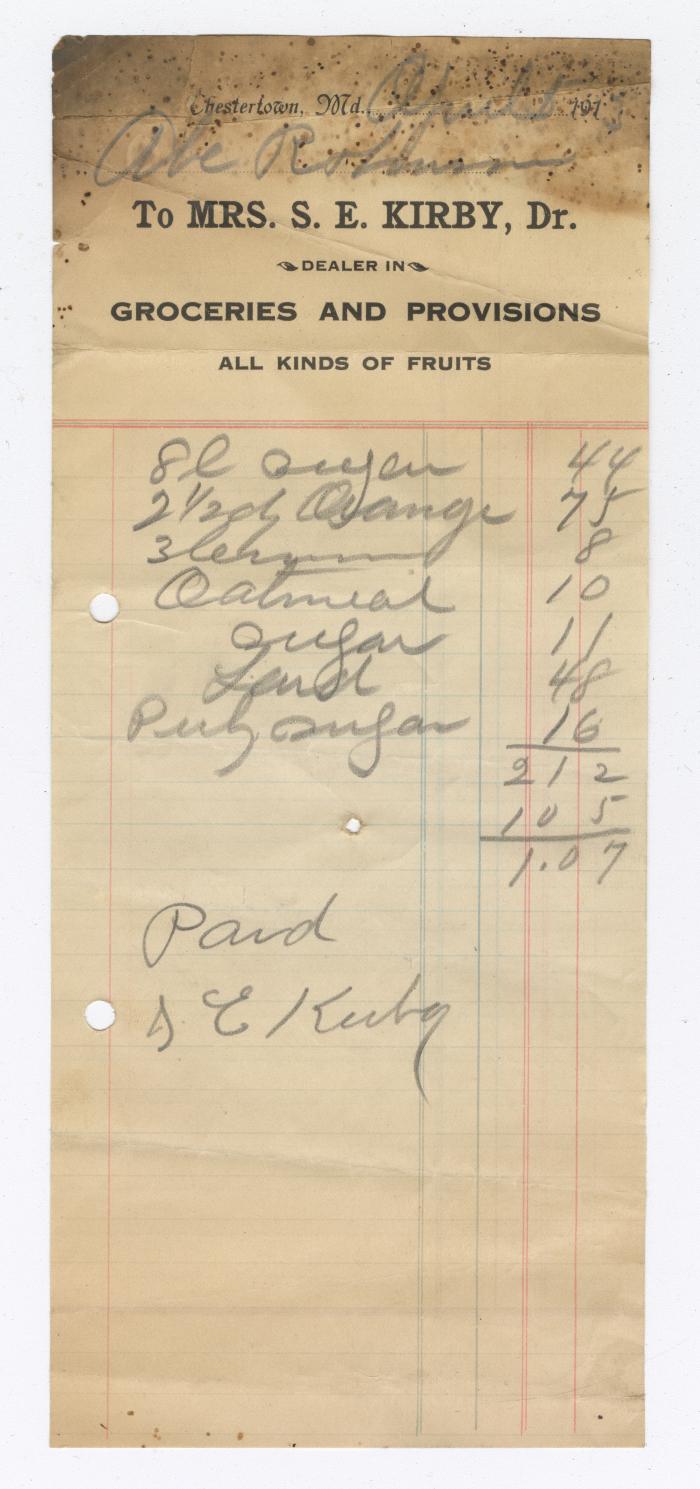 Chestertown, Md. 191
Abe Robinson
To MRS. S. E. KIRBY, Dr.
DEALER IN
GROCERIES AND PROVISIONS
ALL KINDS OF FRUITS
8 l sugar 44
2 1/2 d Orange 75
3 8
Oatmeal 10
sugar 11
Lard 48
sugar 16
2 1 2
1 0 5
1.07
Paid
S E Kirby